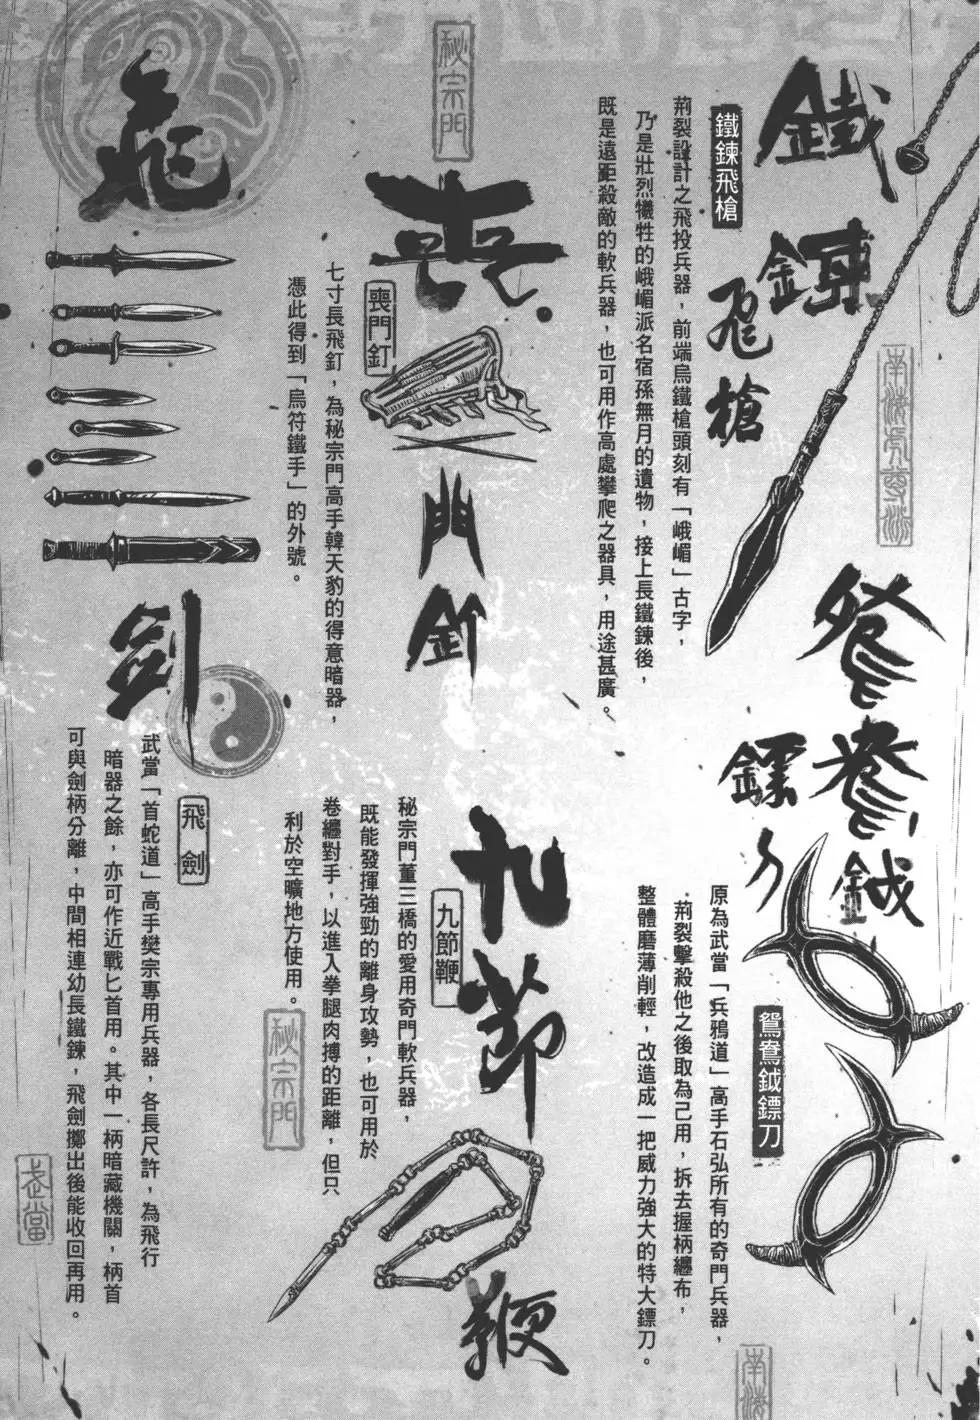 鐵鍊飛槍
鐵鍊飛槍
荊裂設計之飛投兵器，前端烏鐵槍頭刻有「峨嵋」古字，
乃是壯烈犧牲的峨嵋派名宿孫無月的遺物，接上長鐵鍊後，
既是遠距殺敵的軟兵器，也可用作高處攀爬之器具，用途甚廣。
南海虎尊派
鴛鴦鉞
鏢刀
鴛鴦鉞鏢刀
原為武當「兵鴉道」高手石弘所有的奇門兵器，
荊裂擊殺他之後取為己用，拆去握柄纏布，
整體磨薄削輕，改造成一把威力強大的特大鏢刀。
南海
秘宗門
喪門釘
喪門釘
七寸長飛釘，為秘宗門高手韓天豹的得意暗器，
憑此得到「烏符鐵手」的外號。
九節鞭
九節鞭
秘宗門董三橋的愛用奇門軟兵器，
既能發揮強勁的離身攻勢，也可用於
卷纏對手，以進入拳腿肉搏的距離，但只
利於空曠地方使用。
秘宗門
飛劍
飛劍
武當「首蛇道」高手樊宗專用兵器，各長尺許，為飛行
暗器之餘，亦可作近戰匕首用。其中一柄暗藏機關，柄首
可與劍柄分離，中間相連幼長鐵鍊，飛劍擲出後能收回再用。
武當